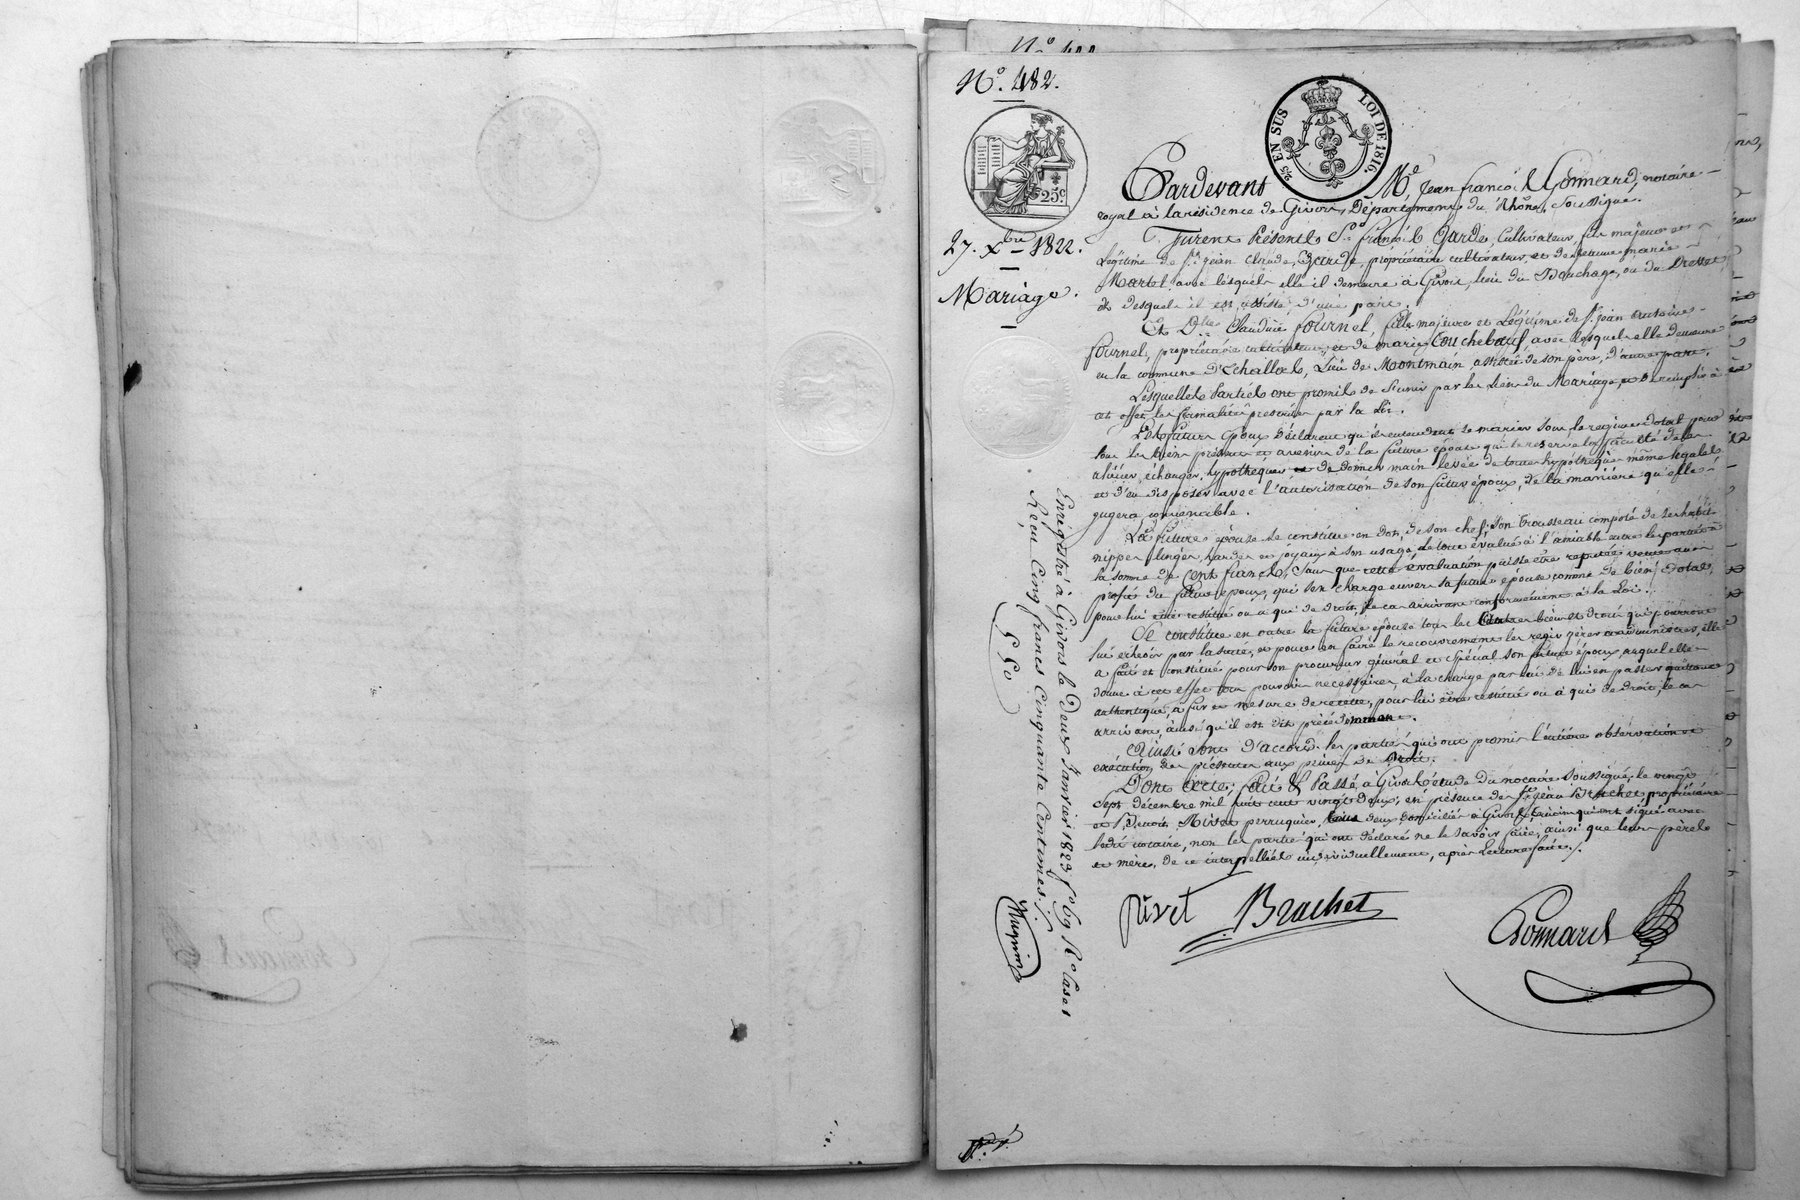 N.o 482.
25 EN SUS LOI DE 1816.
25.c
27. Xbre 1822.
Mariage.
Pardevant Me. Jean François Gonnard, notaire
royal à la résidence de Givors, Département du Rhône, Soussigné.
Furent Présents Sr. françois Garde, Cultivateur, fils majeur et
Légitime de Sr. jean Claude Garde, propriétaire cultivateur, et de femme marie
Martel avec lesquels il demeure à Givors, lieu du Bouchage, ou du Drevet,
& desquels il est assisté d'une part.
Et Dlle Claudine fournel, fille majeure et Légitime de Sr. jean antoine
fournel, propriétaire cultivateur, et de marie Couchebœuf, avec lesquels elle demeure
en la commune d'Echallas, Lieu de Montmain, assistée de son père, d'autre part.
Lesquelles Parties ont promis de s'unir par les Liens du Mariage, et de remplir à
cet effet les formalités prescrites par la Loi.
Les futurs époux déclarent qu'ils entendent se marier sous le régime dotal pour
tous les biens présents et avenir de la future épouse qui se réserve la faculté de les
aliéner, échanger, hypothéquer et de donner main levée de toutes hypothèques même légales
et d'en disposer avec l'autorisation de son futur époux, de la manière qu'elle
jugera convenable.
La future épouse se constitue en dot, de son chef, son trousseau composé de ses habits
nippes, linges, hardes et joyaux à son usage, le tout évalué à l'amiable entre les parties à
la somme de Cent francs, sans que cette évaluation puisse être réputée vente au
profit du futur époux, qui s'en charge envers sa future épouse comme de biens dotal,
pour lui être restitué ou à qui de droit, le cas arrivant conformément à la Loi.
Se constitue en outre la future épouse tous les autres biens et droits qui pourront
lui échoir par la suite, et pour en faire le recouvrement les régir gérer et administrer, elle
a fait et constitué pour son procureur général et spécial son futur époux, auquel elle
donne à cet effet tous pouvoirs nécessaires, à la charge par lui de lui en passer quittance
authentique, à fur et mesure de recette, pour lui être restitués ou à qui de droit, le cas
arrivant, ainsi qu'il est dit précédemment.
Ainsi sont d'accord les parties qui ont promis l'entière observation et
exécution des présentes aux peines de Droit.
Dont Acte, fait & Passé, à Givors étude du notaire soussigné, le vingt
sept décembre mil huit cent vingt deux, en présence de Sr. jean Brachet propriétaire
et Benoit Rivet perruquier, tous deux domiciliés à Givors, témoins qui ont signé avec
ledit notaire, non les parties qui ont déclaré ne le savoir faire, ainsi que leurs pères
et mères, de ce interpellés individuellement, après Lecture faite./.
Rivet Brachet Gonnard
Enrégistré à Givors le Deux Janvier 1823 fo 69 Ro Case 1
Reçu Cinq francs Cinquante Centimes./.
5,50